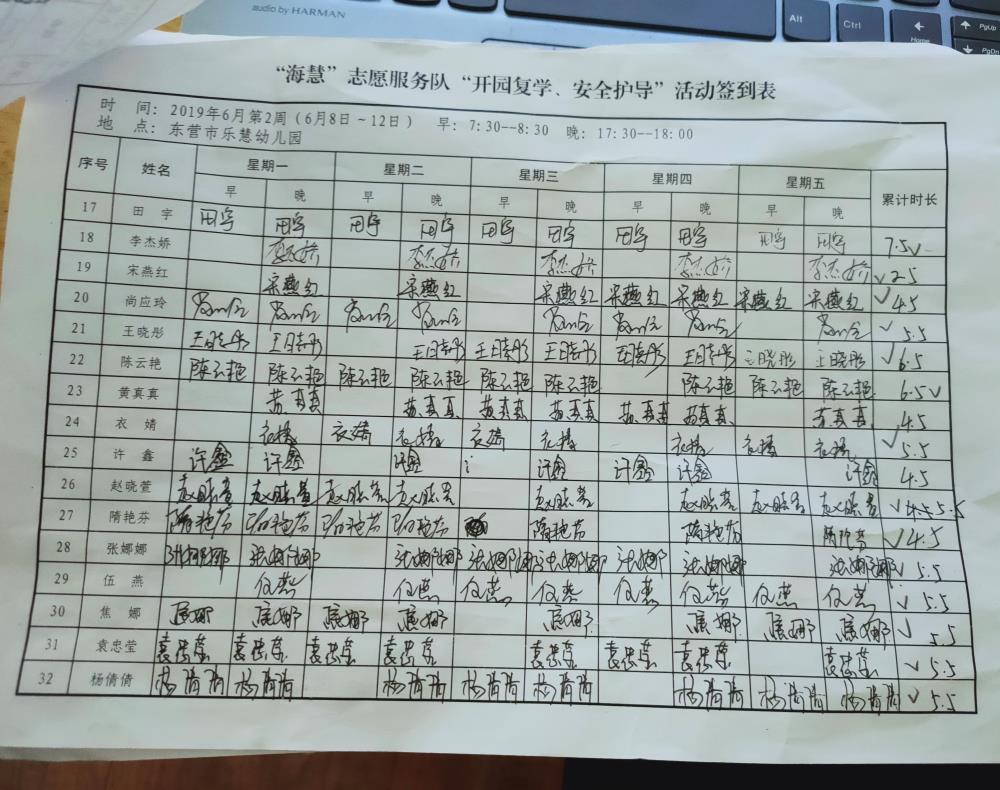 audio by HARMAN
Alt
Ctrl
Home
PgUp
PgDn
“海慧”志愿服务队“开园复学、安全护导”活动签到表
时 间：2019年6月第2周（6月8日～12日） 早：7:30--8:30 晚：17:30--18:00
地 点：东营市乐慧幼儿园
序号 姓名 星期一 星期二 星期三 星期四 星期五 累计时长
早 晚 早 晚 早 晚 早 晚 早 晚
17 田宇 田宇 田宇 田宇 田宇 田宇 田宇 田宇 田宇 田宇 田宇 7.5√
18 李杰娇 李杰娇 李杰娇 李杰娇 李杰娇 李杰娇 √2.5
19 宋燕红 宋燕红 宋燕红 宋燕红 宋燕红 宋燕红 宋燕红 宋燕红 √4.5
20 尚应玲 √5.5
21 王晓彤 王晓彤 王晓彤 王晓彤 王晓彤 王晓彤 王晓彤 王晓彤 王晓彤 王晓彤 √6.5
22 陈云艳 陈云艳 陈云艳 陈云艳 陈云艳 陈云艳 陈云艳 陈云艳 陈云艳 陈云艳 6.5√
23 黄真真 4.5
24 衣婧 衣婧 衣婧 衣婧 衣婧 衣婧 衣婧 衣婧 衣婧 √5.5
25 许鑫 许鑫 许鑫 许鑫 许鑫 许鑫 许鑫 许鑫 4.5
26 赵晓萱 赵晓萱 赵晓萱 赵晓萱 赵晓萱 赵晓萱 赵晓萱 赵晓萱 赵晓萱 √ 5.5
27 隋艳芬 隋艳芬 隋艳芬 隋艳芬 隋艳芬 隋艳芬 隋艳芬 隋艳芬 √4.5
28 张娜娜 张娜娜 张娜娜 张娜娜 张娜娜 张娜娜 张娜娜 张娜娜 张娜娜 √5.5
29 伍燕 伍燕 伍燕 伍燕 伍燕 伍燕 伍燕 伍燕 伍燕 √5.5
30 焦娜 焦娜 焦娜 焦娜 焦娜 焦娜 焦娜 焦娜 焦娜 √5.5
31 袁忠莹 袁忠莹 袁忠莹 袁忠莹 袁忠莹 袁忠莹 袁忠莹 袁忠莹 袁忠莹 √5.5
32 杨倩倩 杨倩倩 杨倩倩 杨倩倩 杨倩倩 杨倩倩 杨倩倩 杨倩倩 杨倩倩 √5.5